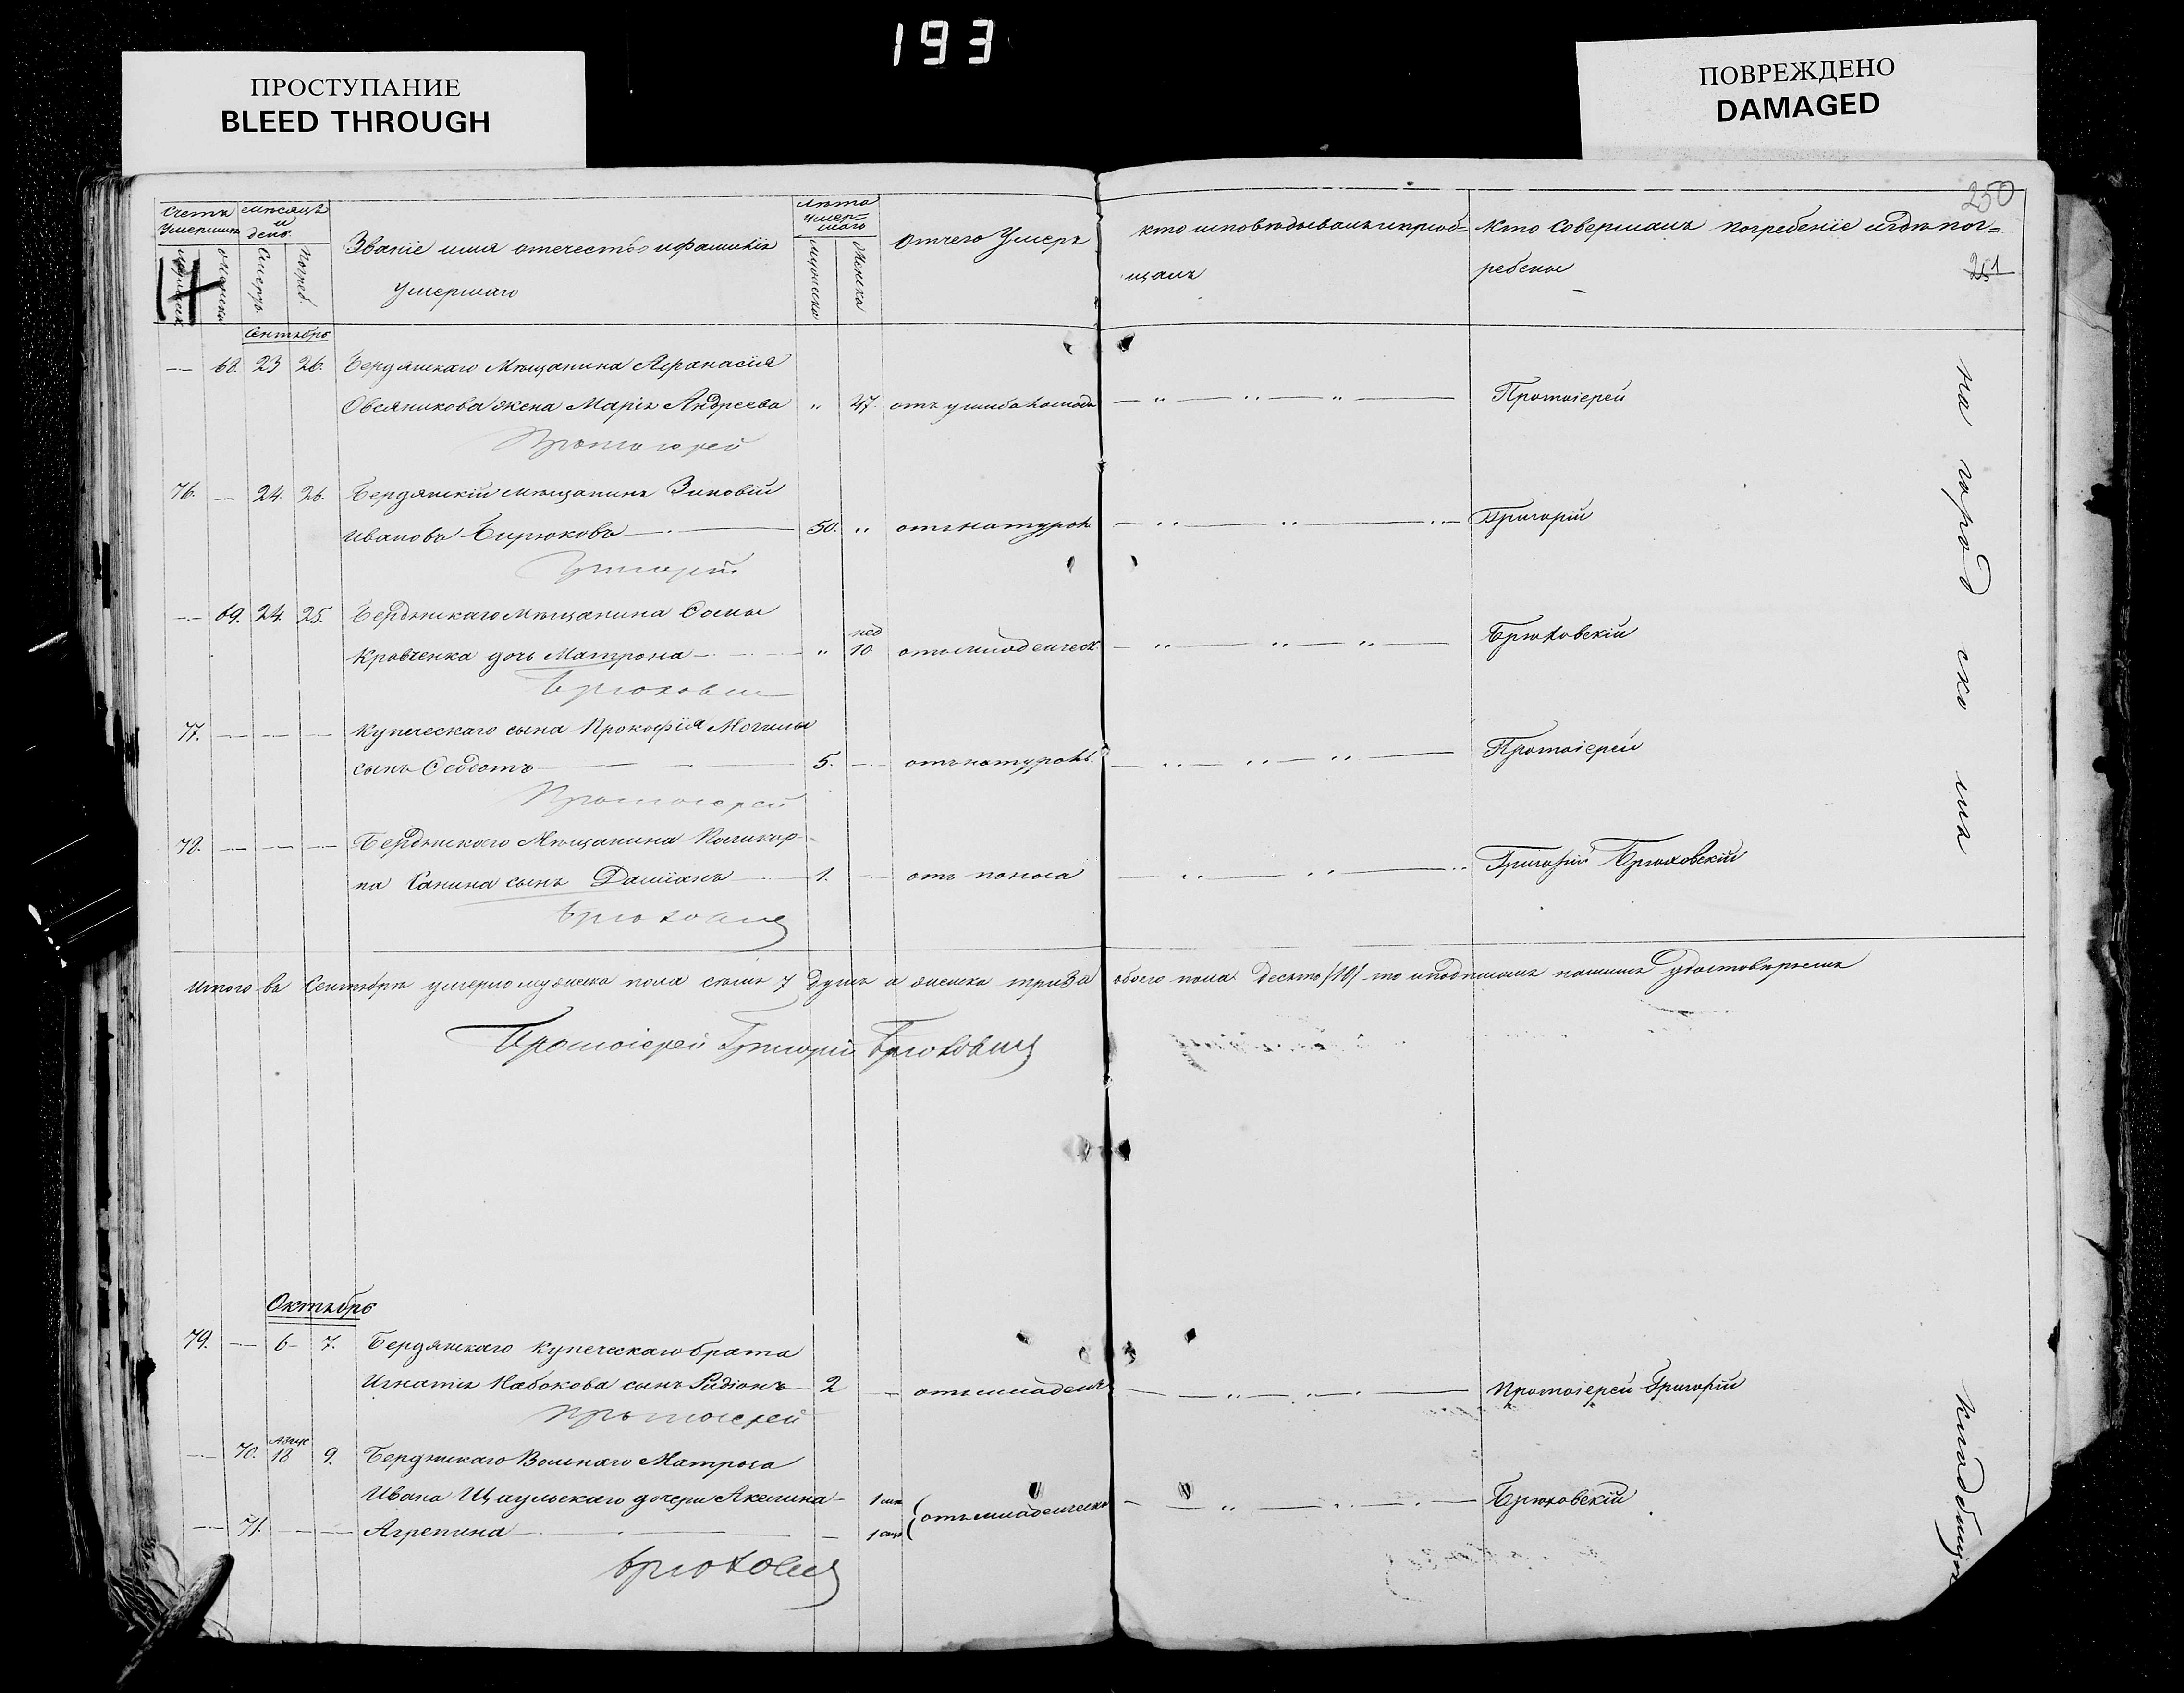 193
ПРОСТУПАНИЕ
BLEED THROUGH
ПОВРЕЖДЕНО
DAMAGED
250
251
Счетъ Умершихъ
Мѣсяцъ и день
Смерть
Погреб.
Званіе имя отечество и фамилія умершаго
Лѣта умер=шаго
Мужска
Женска
Отчего Умеръ
кто исповѣдывалъ и пріоб=щалъ
Кто Совершалъ погребеніе и гдѣ пог=ребены
Сентябрь
68. 23 26. Бердянскаго Мѣщанина Афанасія
Овсяникова жена Марія Андреева " 47. отъ ушиба Протоіерей
Протоіерей
76. — 24. 26. Бердянскій мѣщанинъ Зиновій
Ивановъ Бирюковъ 50. " отъ натурал Григорій
Григорій
69. 24. 25. Бердянскаго Мѣщанина Фомы
Кравченка дочь Матрона " нед 10 отъ младенческ Брюховскій
77. Купеческаго сына Прокофія Могилы
сынъ Феодотъ 5. отъ натурал. Протоіерей
Протоіерей
78. Бердянскаго Мѣщанина Поликар
па Сапина сынъ Даміанъ 1. отъ поноса Григорій Брюховскій
Итого въ Сентябрѣ умерло мужеска пола семь 7 Душъ а женска три 3 обоего пола десять /10/ что и подписомъ нашимъ удостовѣряемъ
Протоіерей Григорій Брюховскій
Октябрь
79. — 6 7. Бердянскаго купеческаго брата
Игнатія Набокова сынъ Родіонъ 2 отъ младенч Протоіерей Григорій
Протоіерей
70. 18 9. Бердянскаго Вольнаго Матроса
Ивана дочери Акилина 1 отъ младенческа Брюховскій
71. Агрепина 1
на город ско мъ
кладбищѣ